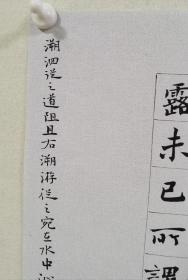 露未已所謂
溯洄從之道阻且右溯游從之宛在水中沚